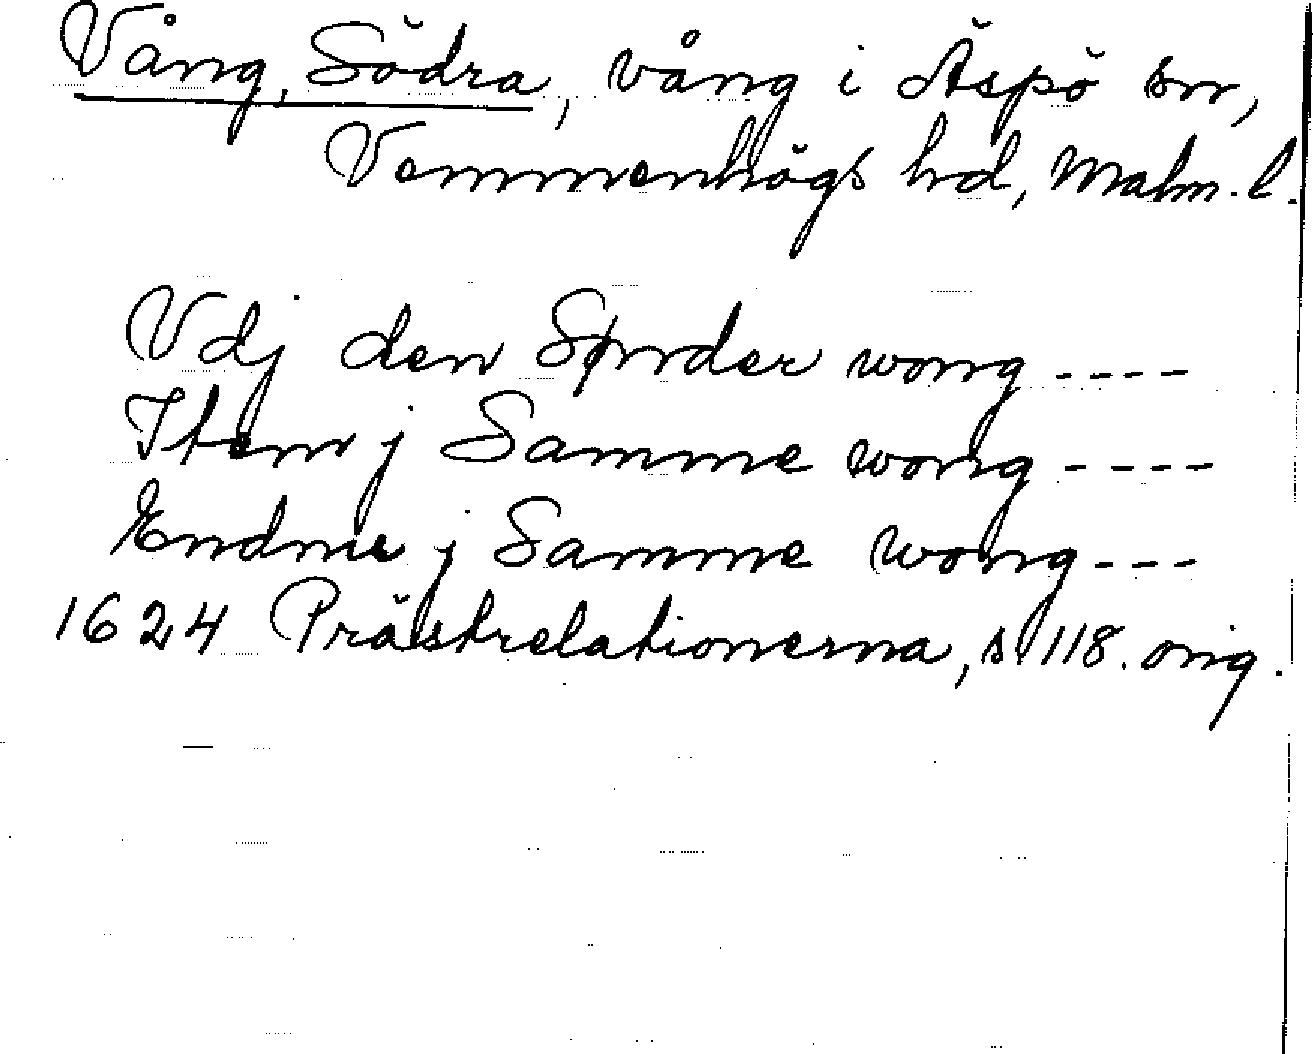 Vång, Södra, vång i Äspö sn,
Vemmenhögs hd, Malm. l.
Vdj den Sønder wong ----
Item j Samme wong ----
Endnu j Samme wong ---
1624 Prästrelationerna, s. 118. orig.